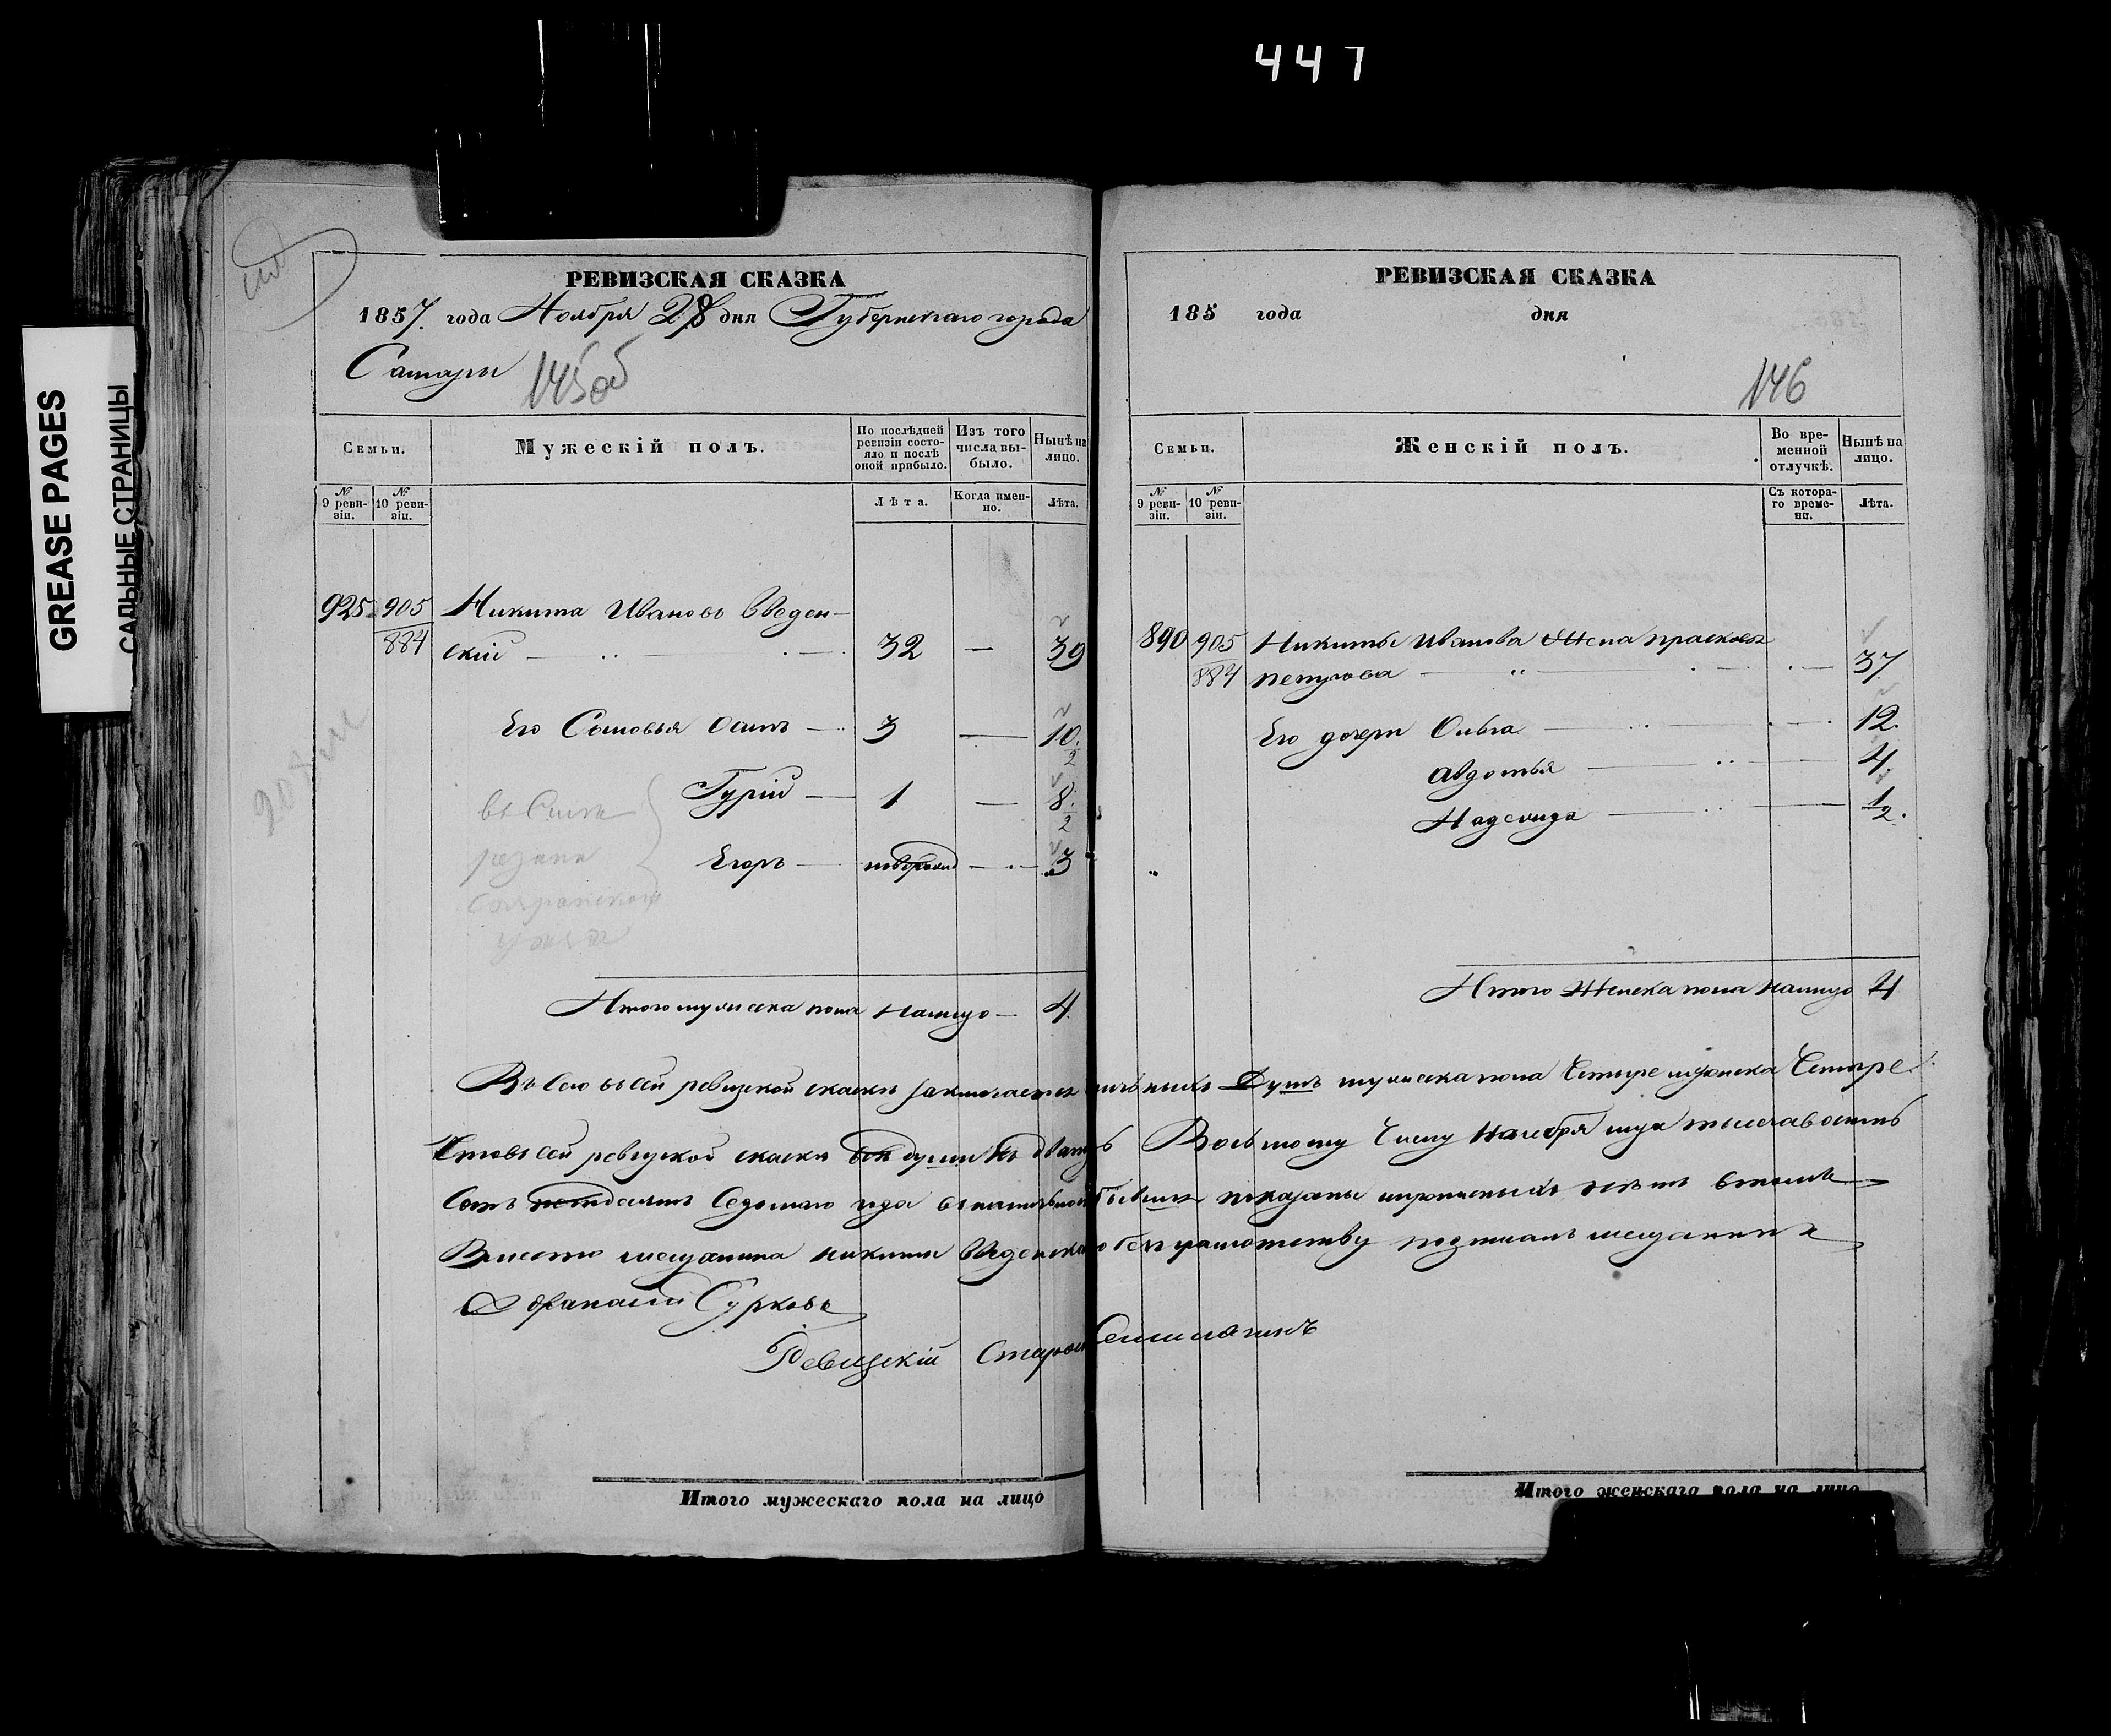 447
GREASE PAGES
САЛЬНЫЕ СТРАНИЦЫ
РЕВИЗСКАЯ СКАЗКА
1857. года Ноября 28 дня Губернскаго города
Самары
145об
Семьи.
Мужескій полъ.
По послѣдней ревизіи состояло и послѣ оной прибыло.
Изъ того числа выбыло.
Нынѣ на лицо.
№ 9 ревизіи.
№ 10 ревизіи.
Лѣта.
Когда именно.
Лѣта.
925 905 Никита Ивановъ Введен-
884 скій 32 — 39
Его Сыновья Осипъ — 3 — 10 1/2
Гурій — 1 — 8 1/2
Егоръ — — 3
Итого мужеска пола налицо — 4.
РЕВИЗСКАЯ СКАЗКА
185 года дня
146
Семьи.
Женскій полъ.
Во временной отлучкѣ.
Нынѣ на лицо.
№ 9 ревизіи.
№ 10 ревизіи.
Съ котораго времени.
Лѣта.
890 905 Никиты Иванова Жена прасковья
884 петрова — 37
Его дочери Ольга — 12.
авдотья — 4.
Надежда — 1/2.
Итого Женска пола налицо 4
Въ сей ревизской скаскѣ заключается Душъ мужеска пола Четыре женска Четыре
сей ревизской скаски души Къ двадъ Восьмому Числу Ноября тысеча восемь
Сотъ петдесятъ Седьмаго года показаны
Вместо мещанина никиты Введенскаго подписалъ мещанинъ
Афанасій Сурковъ
Ревизскій Староста
Итого мужескаго пола на лицо
Итого женскаго пола на лицо